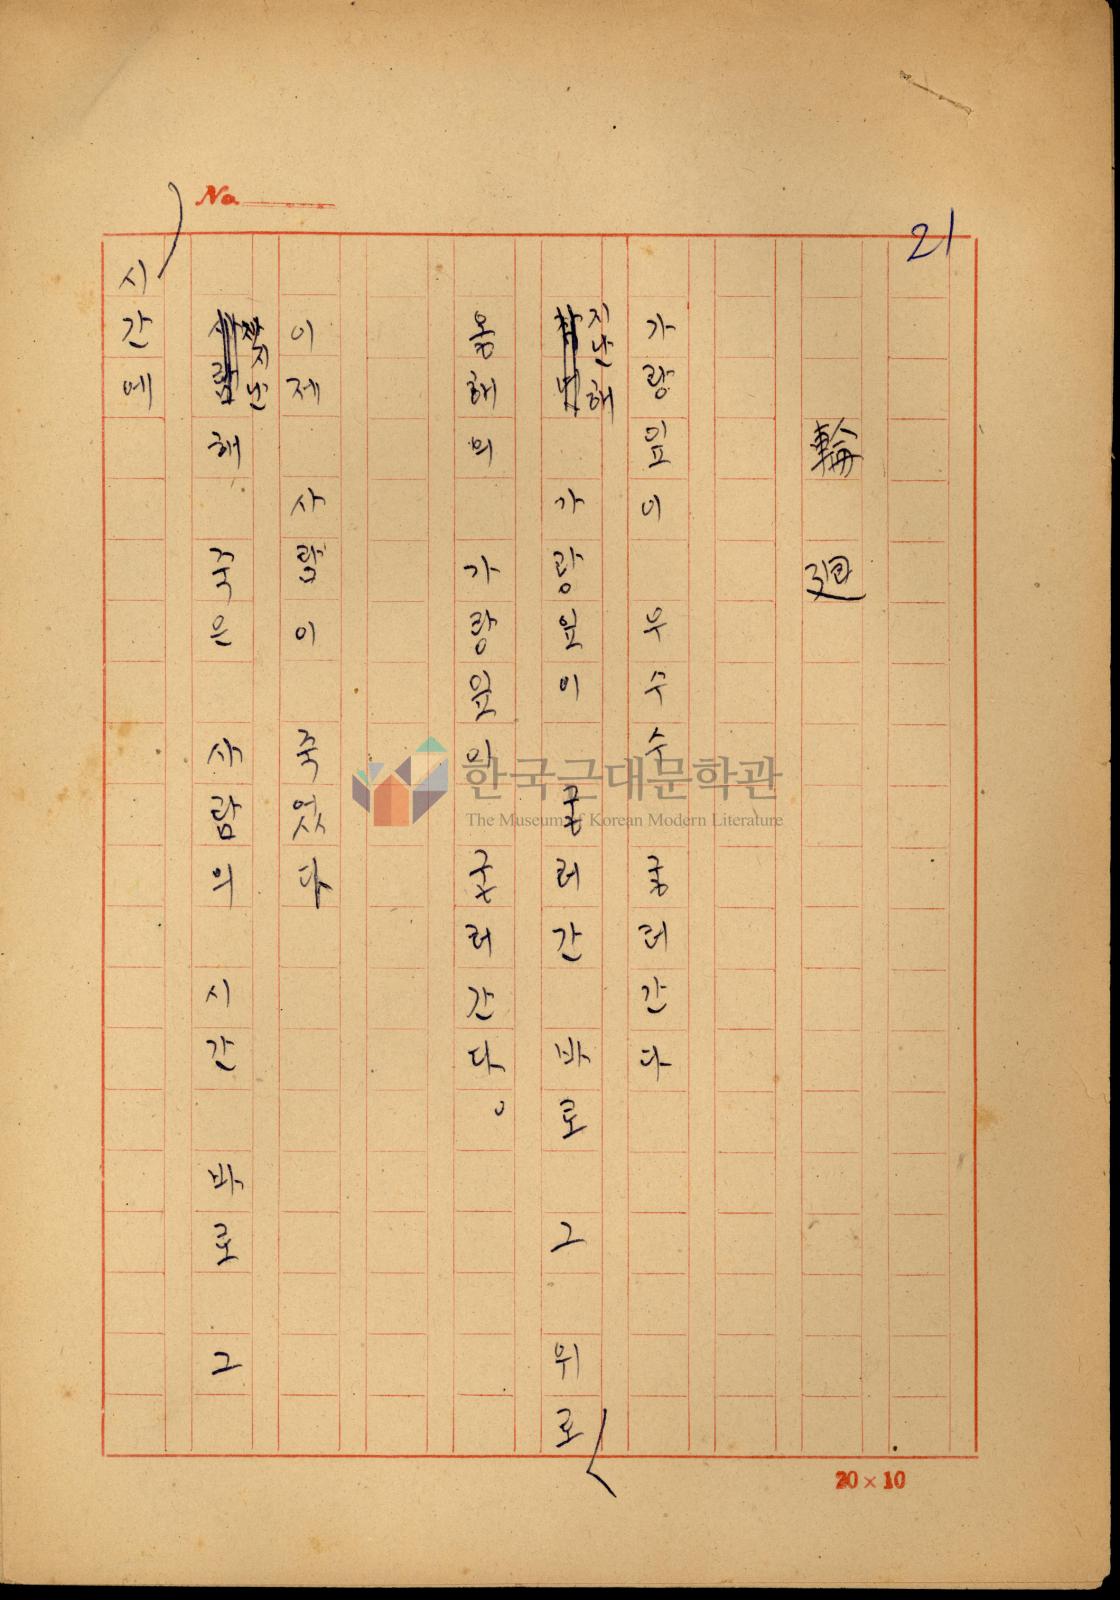 No.
21
輪廻
가랑잎이 우수수 굴러간다
지난해 가랑잎이 굴러간 바로 그 위로
올해의 가랑잎이 굴러간다。
이제 사람이 죽었다
지난해 죽은 사람의 시간 바로 그
시간에
20×10
한국근대문학관
The Museum of Korean Modern Literature